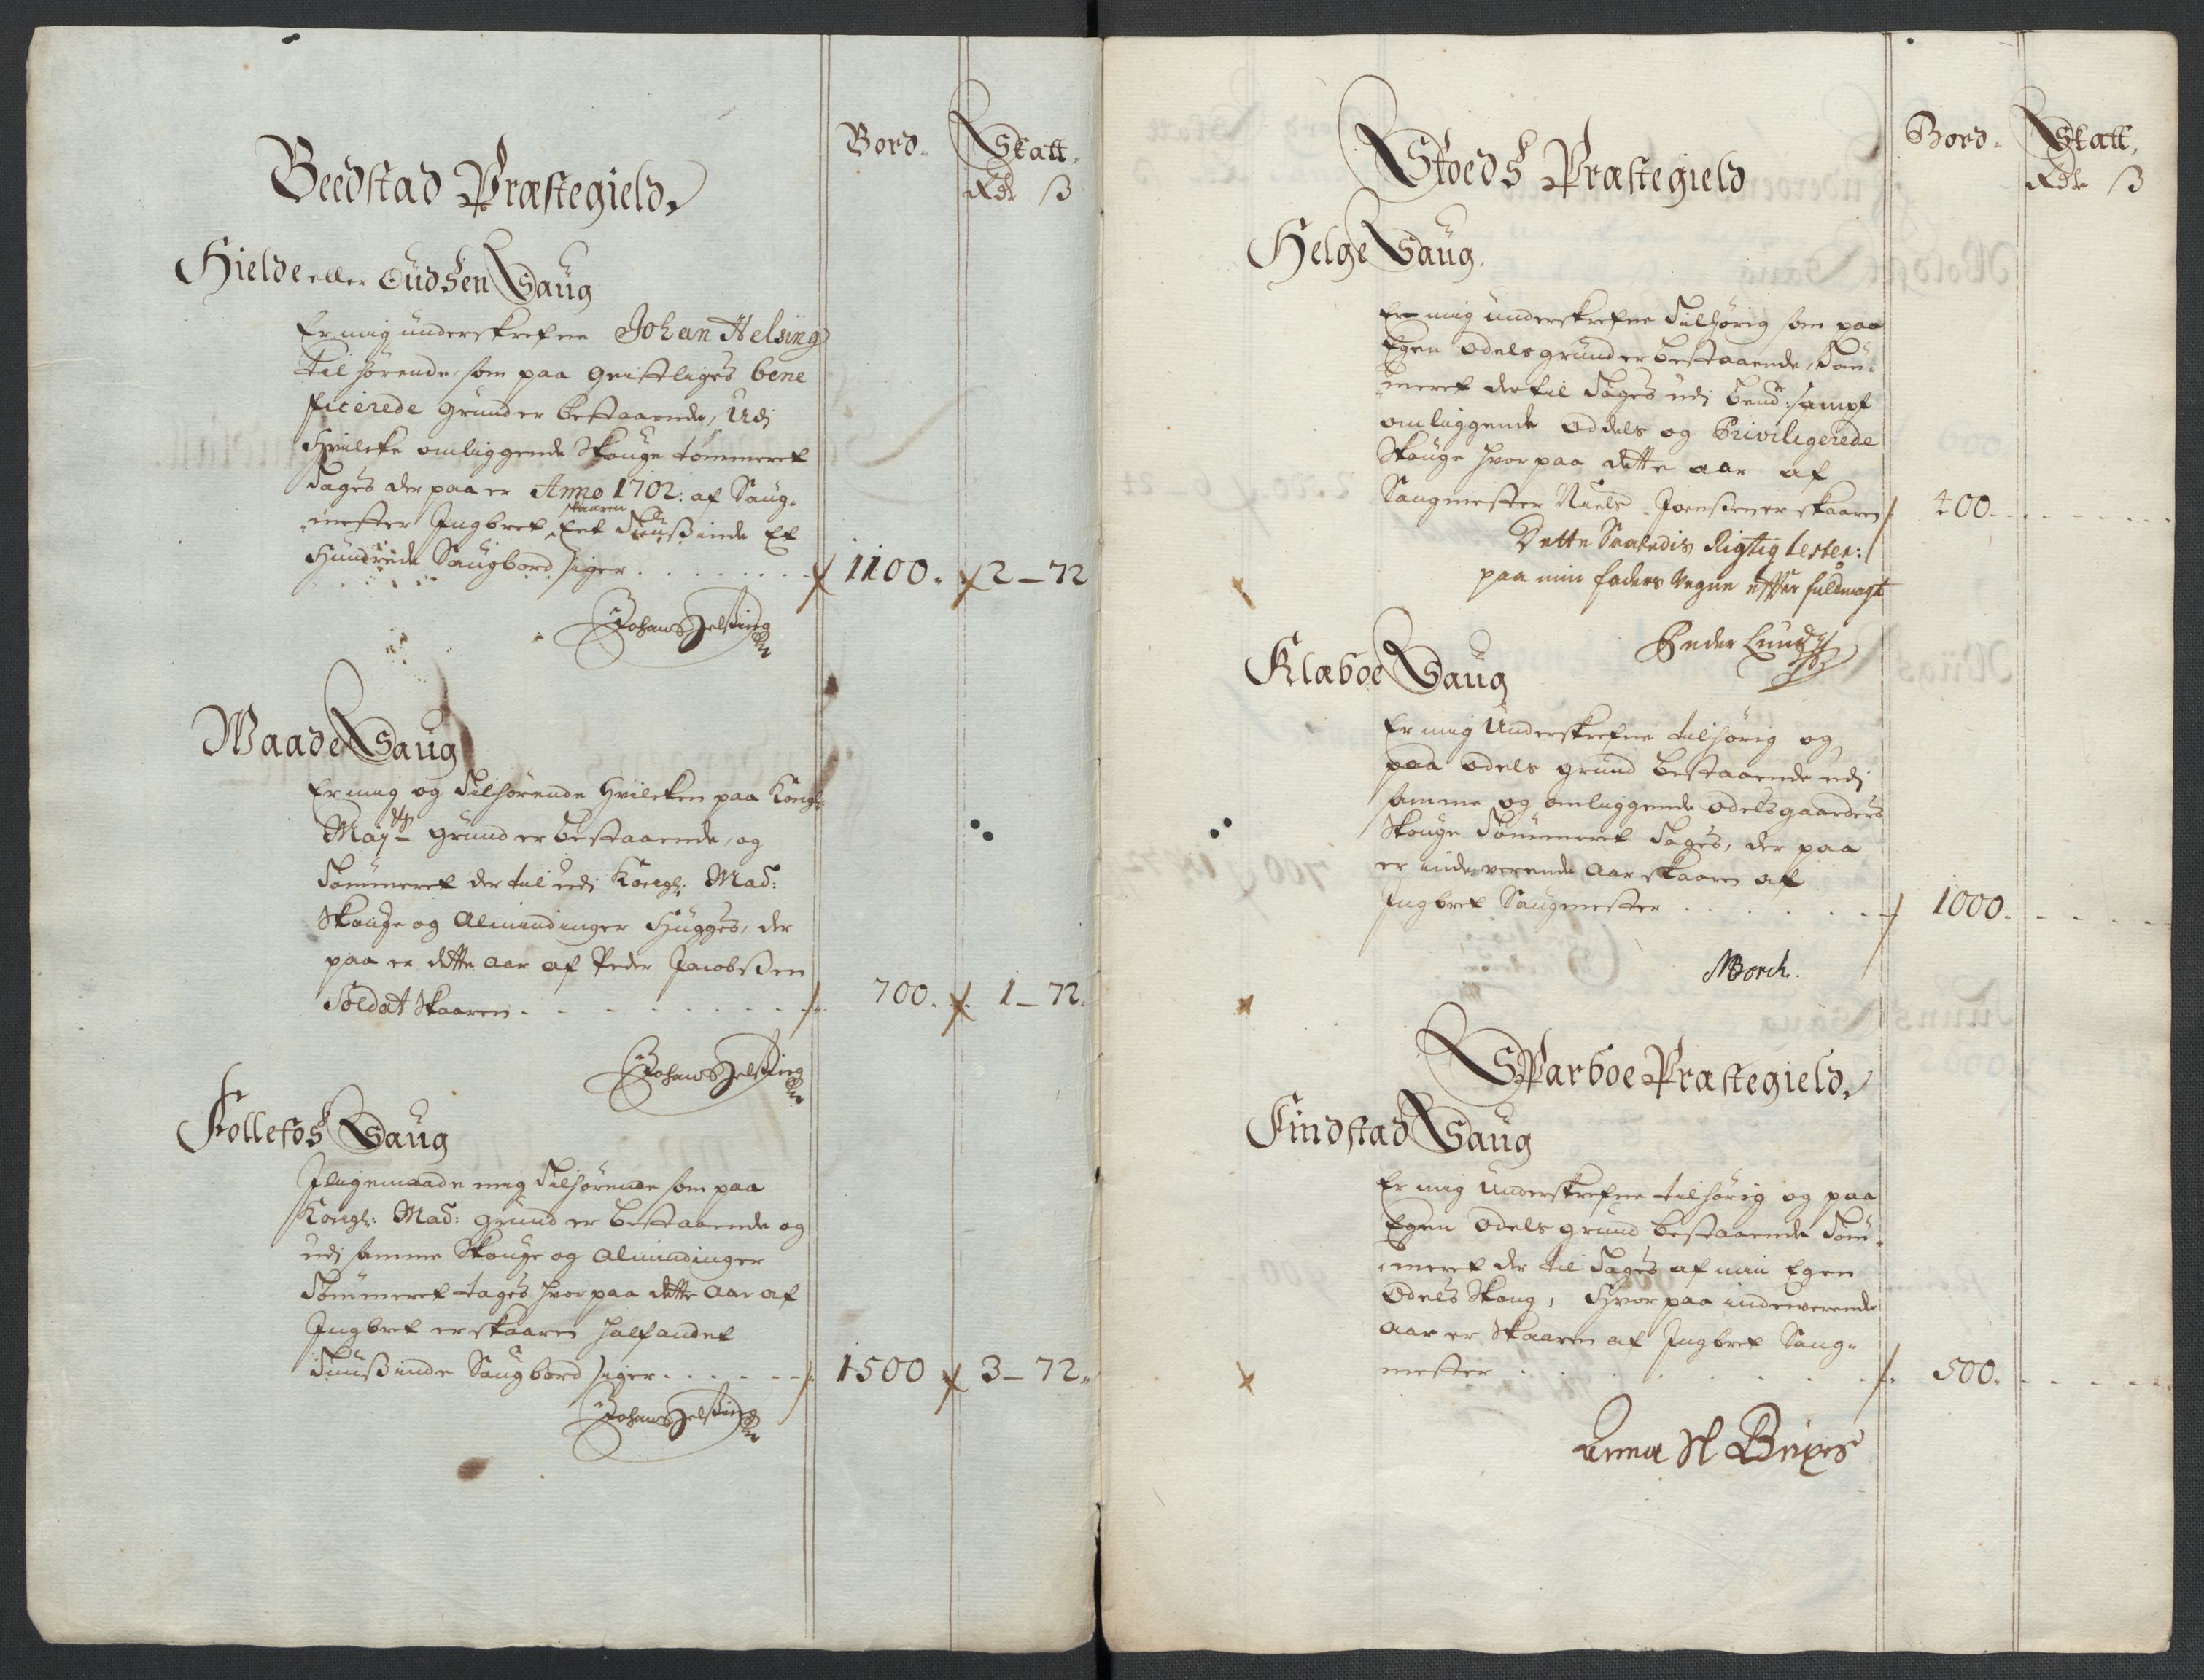 Bord. Skatt.
Beedstad Præstegield.
Rdr ß
Hielde eller Oudsen Saug
Er mig underskrefne Johan Helsing
tilhørende, som paa geistliges bene
ficerede grund er bestaaende, Udj
Hvilcke omliggende Skouge tømmeret
Tages der paa er Anno 1702: af Saug-
mester Ingbret skaaren Eet Tuusinde Et
Hundrede Saugbord siger 1100. 2-72
Johan Helsing
Waade Saug
Er mig og Tilhørende hvilcken paa Kongl:
Maytz grund er bestaaende, og
Tømmeret der til udj Kongl: May:
Skouge og Almindinger Hugges, der
paa er dette aar af Peder Jacobsen
Soldat skaaren 700. 1-72.
Johan Helsing
Follefos Saug
Iligemaade mig Tilhørende som paa
Kongl: May: grund er bestaaende og
udj samme Skouge og Almindinger
Tømmeret tages hvor paa dette aar af
Ingbret er skaaren halfandet
Tuusinde Saugbord siger 1500 3-72.
Johan Helsing
Bord. Skatt.
Stoeds Præstegield
Rdr ß
Helge Saug.
Er mig underskrefne Tilhørig som paa
Egen Odels grund er bestaaende, Tøm-
meret der til Tages udj bemt: sampt
omliggende Oddels og Privilegerede
Skouge hvor paa dette aar af
Saugmester Niels Joensen er skaaren 400.
Dette Saaledis Rigtig tester:
paa min faders Vegne effter fuldmagt
Peder Lund
Klæboe Saug
Er mig Underskrefne tilhørig og
paa Odels grund bestaaende udj
samme og omliggende Odelsgaarders
Skouge Tømmeret Tages, der paa
er indeverende Aar skaaren af
Ingbret Saugmester 1000.
MBorch.
Sparboe Præstegield.
Findstad Saug
Er mig Underskrefne tilhørig og paa
Egen Odels grund bestaaende Tøm-
meret der til Tages af min Egen
Odels Skoug, Hvor paa indeverende
Aar er Skaaren af Ingbret Saug-
mester 500.
Anna Sl Brixes